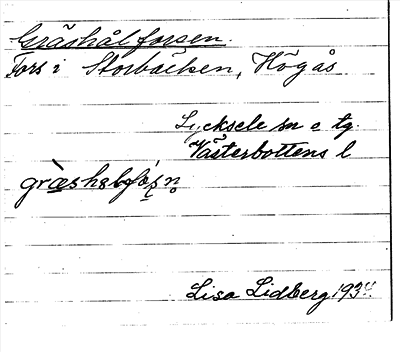 Gräshålforsen.
Fors i Storbäcken, Högås
Lycksele sn o tg.
Västerbottens l
Lisa Lidberg 193